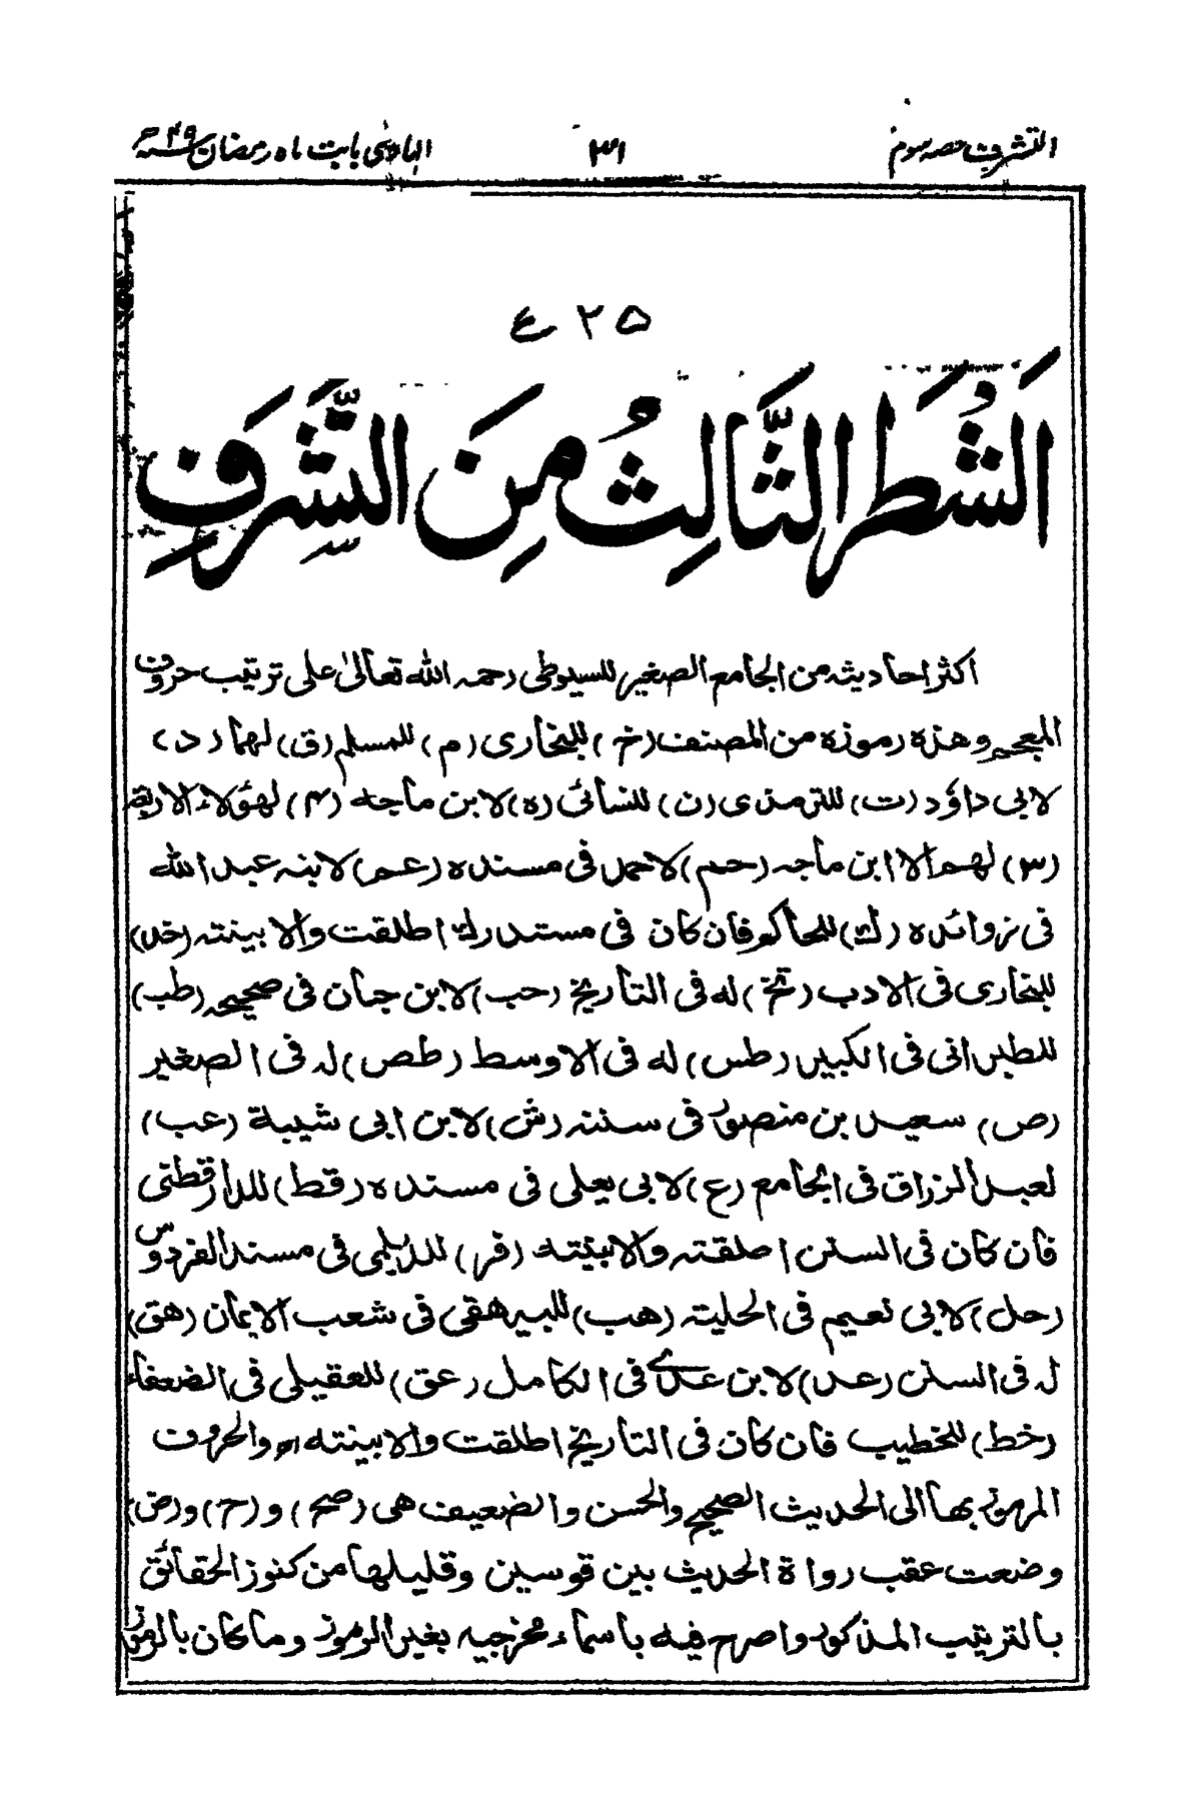 التشرف حصہ سوم
۳۱
الہادی بابت ماہ رمضان ۴۹ھ
۲۵ ع
اَلشَّطرُ الثَّالِثُ مِنَ التَّشَرُّفِ
اکثر احادیثہ من الجامع الصغیر للسیوطی رحمہ اللہ تعالیٰ علی ترتیب حروف
المعجم وھذہ رموزہ من المصنف (خ) للبخاری (م) للمسلم (ق) لھما (د)
لابی داؤد (ت) للترمذی (ن) للنسائی (ہ) لابن ماجہ (۴) لھؤلاء الاربعۃ
(۳) لھم الا ابن ماجہ (حم) لاحمد فی مسندہ (عم) لابنہ عبد اللہ
فی زوائدہ (ک) للحاکم فان کان فی مستدرک اطلقت والا بینتہ (خد)
للبخاری فی الادب (تخ) لہ فی التاریخ (حب) لابن حبان فی صحیحہ (طب)
للطبرانی فی الکبیر (طس) لہ فی الاوسط (طص) لہ فی الصغیر
(ص) سعید بن منصور فی سننہ (ش) لابن ابی شیبۃ (عب)
لعبد الرزاق فی الجامع (ع) لابی یعلی فی مسندہ (قط) للدارقطنی
فان کان فی السنن اطلقتہ والا بینتہ (فر) للدیلمی فی مسند الفردوس
(حل) لابی نعیم فی الحلیتہ (ھب) للبیھقی فی شعب الایمان (ھق)
لہ فی السنن (عد) لابن عدی فی الکامل (عق) للعقیلی فی الضعفاء
(خط) للخطیب فان کان فی التاریخ اطلقت والا بینتہ اھ والحروف
المرموز بھا الی الحدیث الصحیح والحسن والضعیف ھی (صح) و (ح) و (ض)
وضعت عقب رواۃ الحدیث بین قوسین وقلیلھا من کنوز الحقائق
بالترتیب المذکور واصرح فیہ باسماء مخرجیہ بغیر الرموز وما کان بالرموز